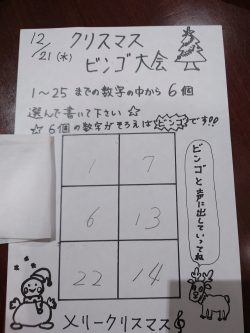 12/21(水)
クリスマス
ビンゴ大会
1〜25 までの数字の中から 6個
選んで書いて下さい☆
☆ 6個の数字がそろえばビンゴです!!
1 7
6 13
22 14
ビンゴと声に出していってね
メリークリスマス